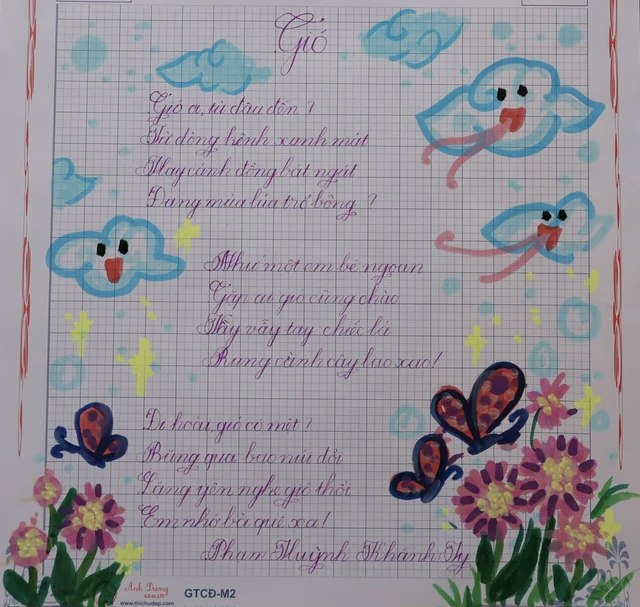 Gió
Gió ơi, từ đâu đến ?
Từ dòng kênh xanh mát
Hay cánh đồng bát ngát
Đang mùa lúa trổ bông ?
Như một em bé ngoan
Gặp ai gió cũng chào
Vẫy tay chiếc lá
Rung cành cây lao xao!
Đi hoài, gió có mệt ?
Băng qua bao núi đồi
Lặng yên nghe gió thổi
Em nhớ bà quê xa!
Phạm Huỳnh Khánh Ty
Ánh Dương
www.thichudep.com
GTCĐ-M2